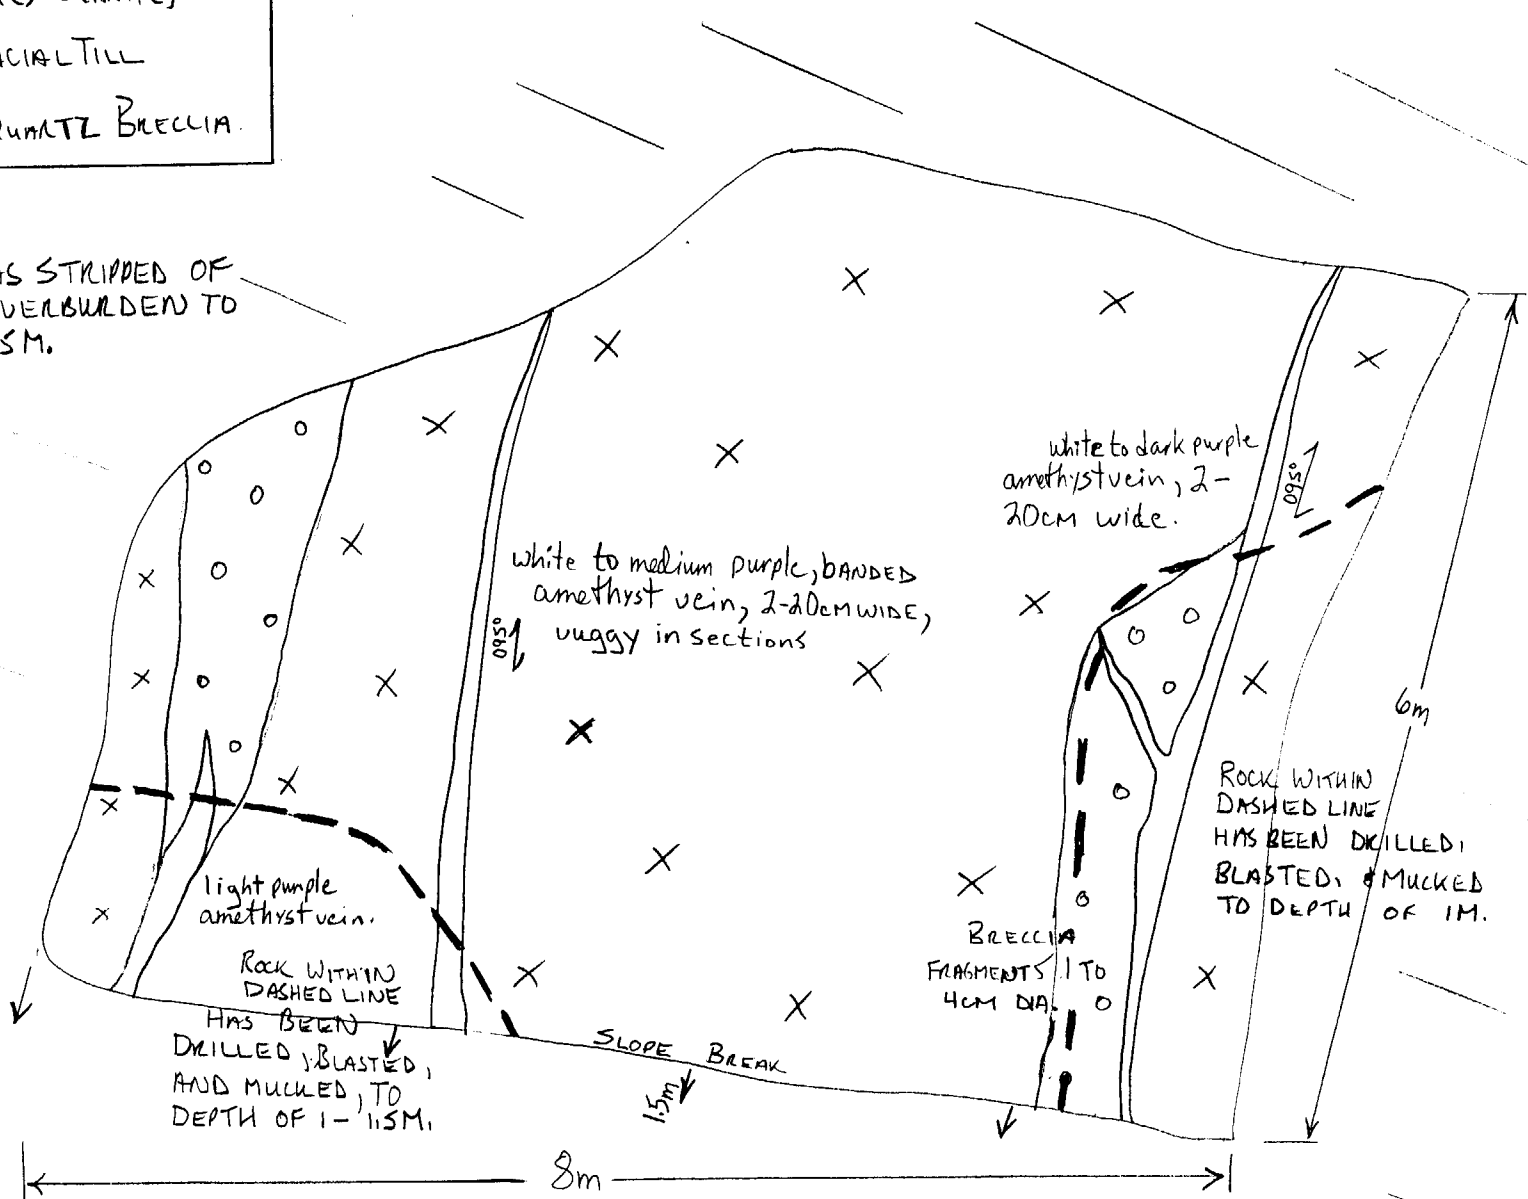 GLACIAL TILL
QUARTZ BRECCIA.
STRIPPED OF
OVERBURDEN TO
5M.
white to dark purple
amethyst vein, 2-
20cm wide.
095°
white to medium purple, BANDED
amethyst vein, 2-20cm WIDE,
vuggy in sections
095°
6m
ROCK WITHIN
DASHED LINE
HAS BEEN DRILLED,
BLASTED, & MUCKED
TO DEPTH OF 1M.
light purple
amethyst vein.
ROCK WITHIN
DASHED LINE
HAS BEEN
DRILLED, BLASTED,
AND MUCKED, TO
DEPTH OF 1 - 1.5M.
BRECCIA
FRAGMENTS 1 TO
4CM DIA.
SLOPE BREAK
1.5m
8m